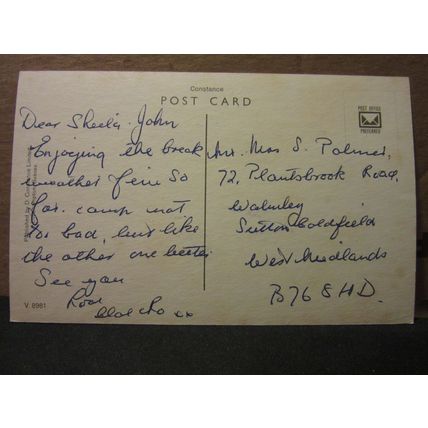 Constance
POST CARD
POST OFFICE
PREFERRED
Dear Sheela. John
Enjoying the break
weather fine so
far. camp not
too bad, but like
the other one better
See you
xx
Mr. Mrs S. Palmer,
72, Plantsbrook Road,
Walmley
Sutton Coldfield
West Midlands
B76 8HD.
V. 8981